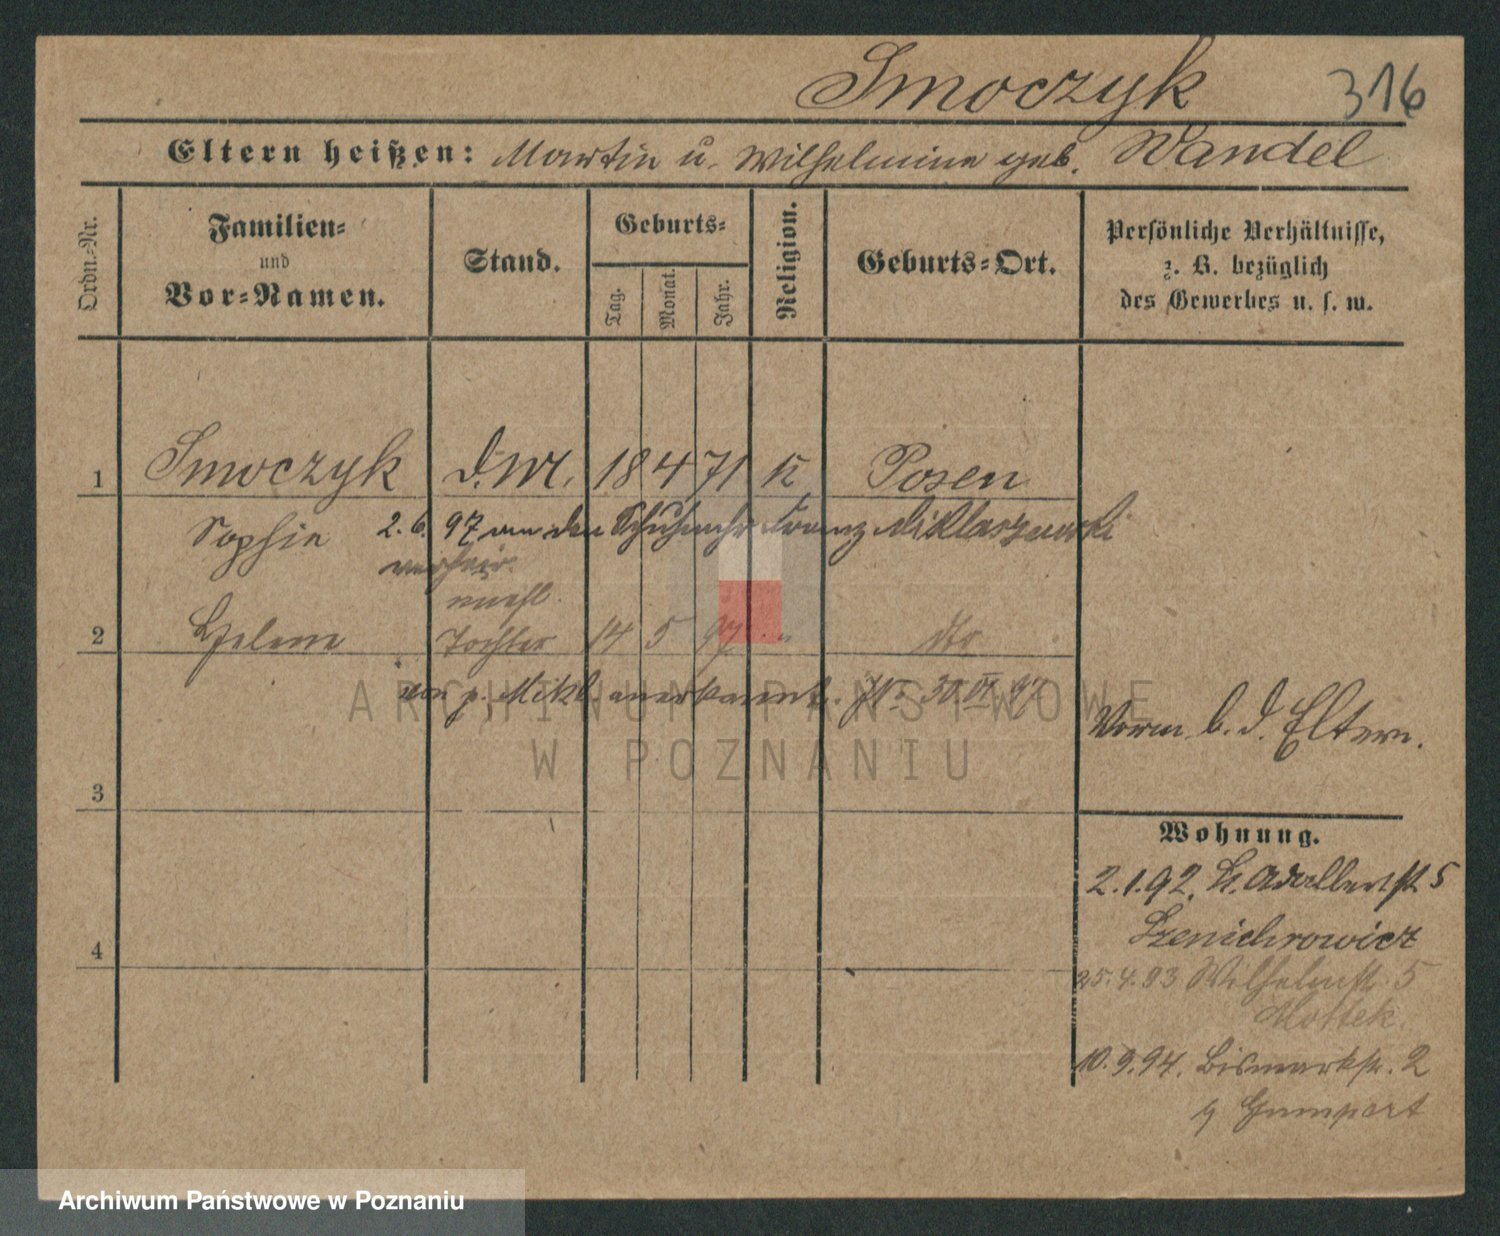 Smoczyk 316
Eltern heißen: Martin u. Wilhelmine geb. Wandel
Ordn.-Nr.
Familien-
und
Vor-Namen.
Stand.
Geburts-
Tag.
Monat.
Jahr.
Religion.
Geburts-Ort.
Persönliche Verhältnisse,
z. B. bezüglich
des Gewerbes u. s. w.
1 Smoczyk d. M. 18 4 71 K Posen
Sophie 2.6.97 an den Schuhmchr Franz Miklaszewski
verheir.
unehl.
2 Helene Tochter 14 5 97 " dto
von p. Mikl. anerkannt. 30 VI 97
Vorm. b. d. Eltern.
3
Wohnung.
2.1.92. St. Adalbertst 5
4
25.4.93 Wilhelmst. 5
Mottek.
10.9.94. Bismarckstr. 2
Gumpert
ARCHIWUM PAŃSTWOWE
W POZNANIU
Archiwum Państwowe w Poznaniu